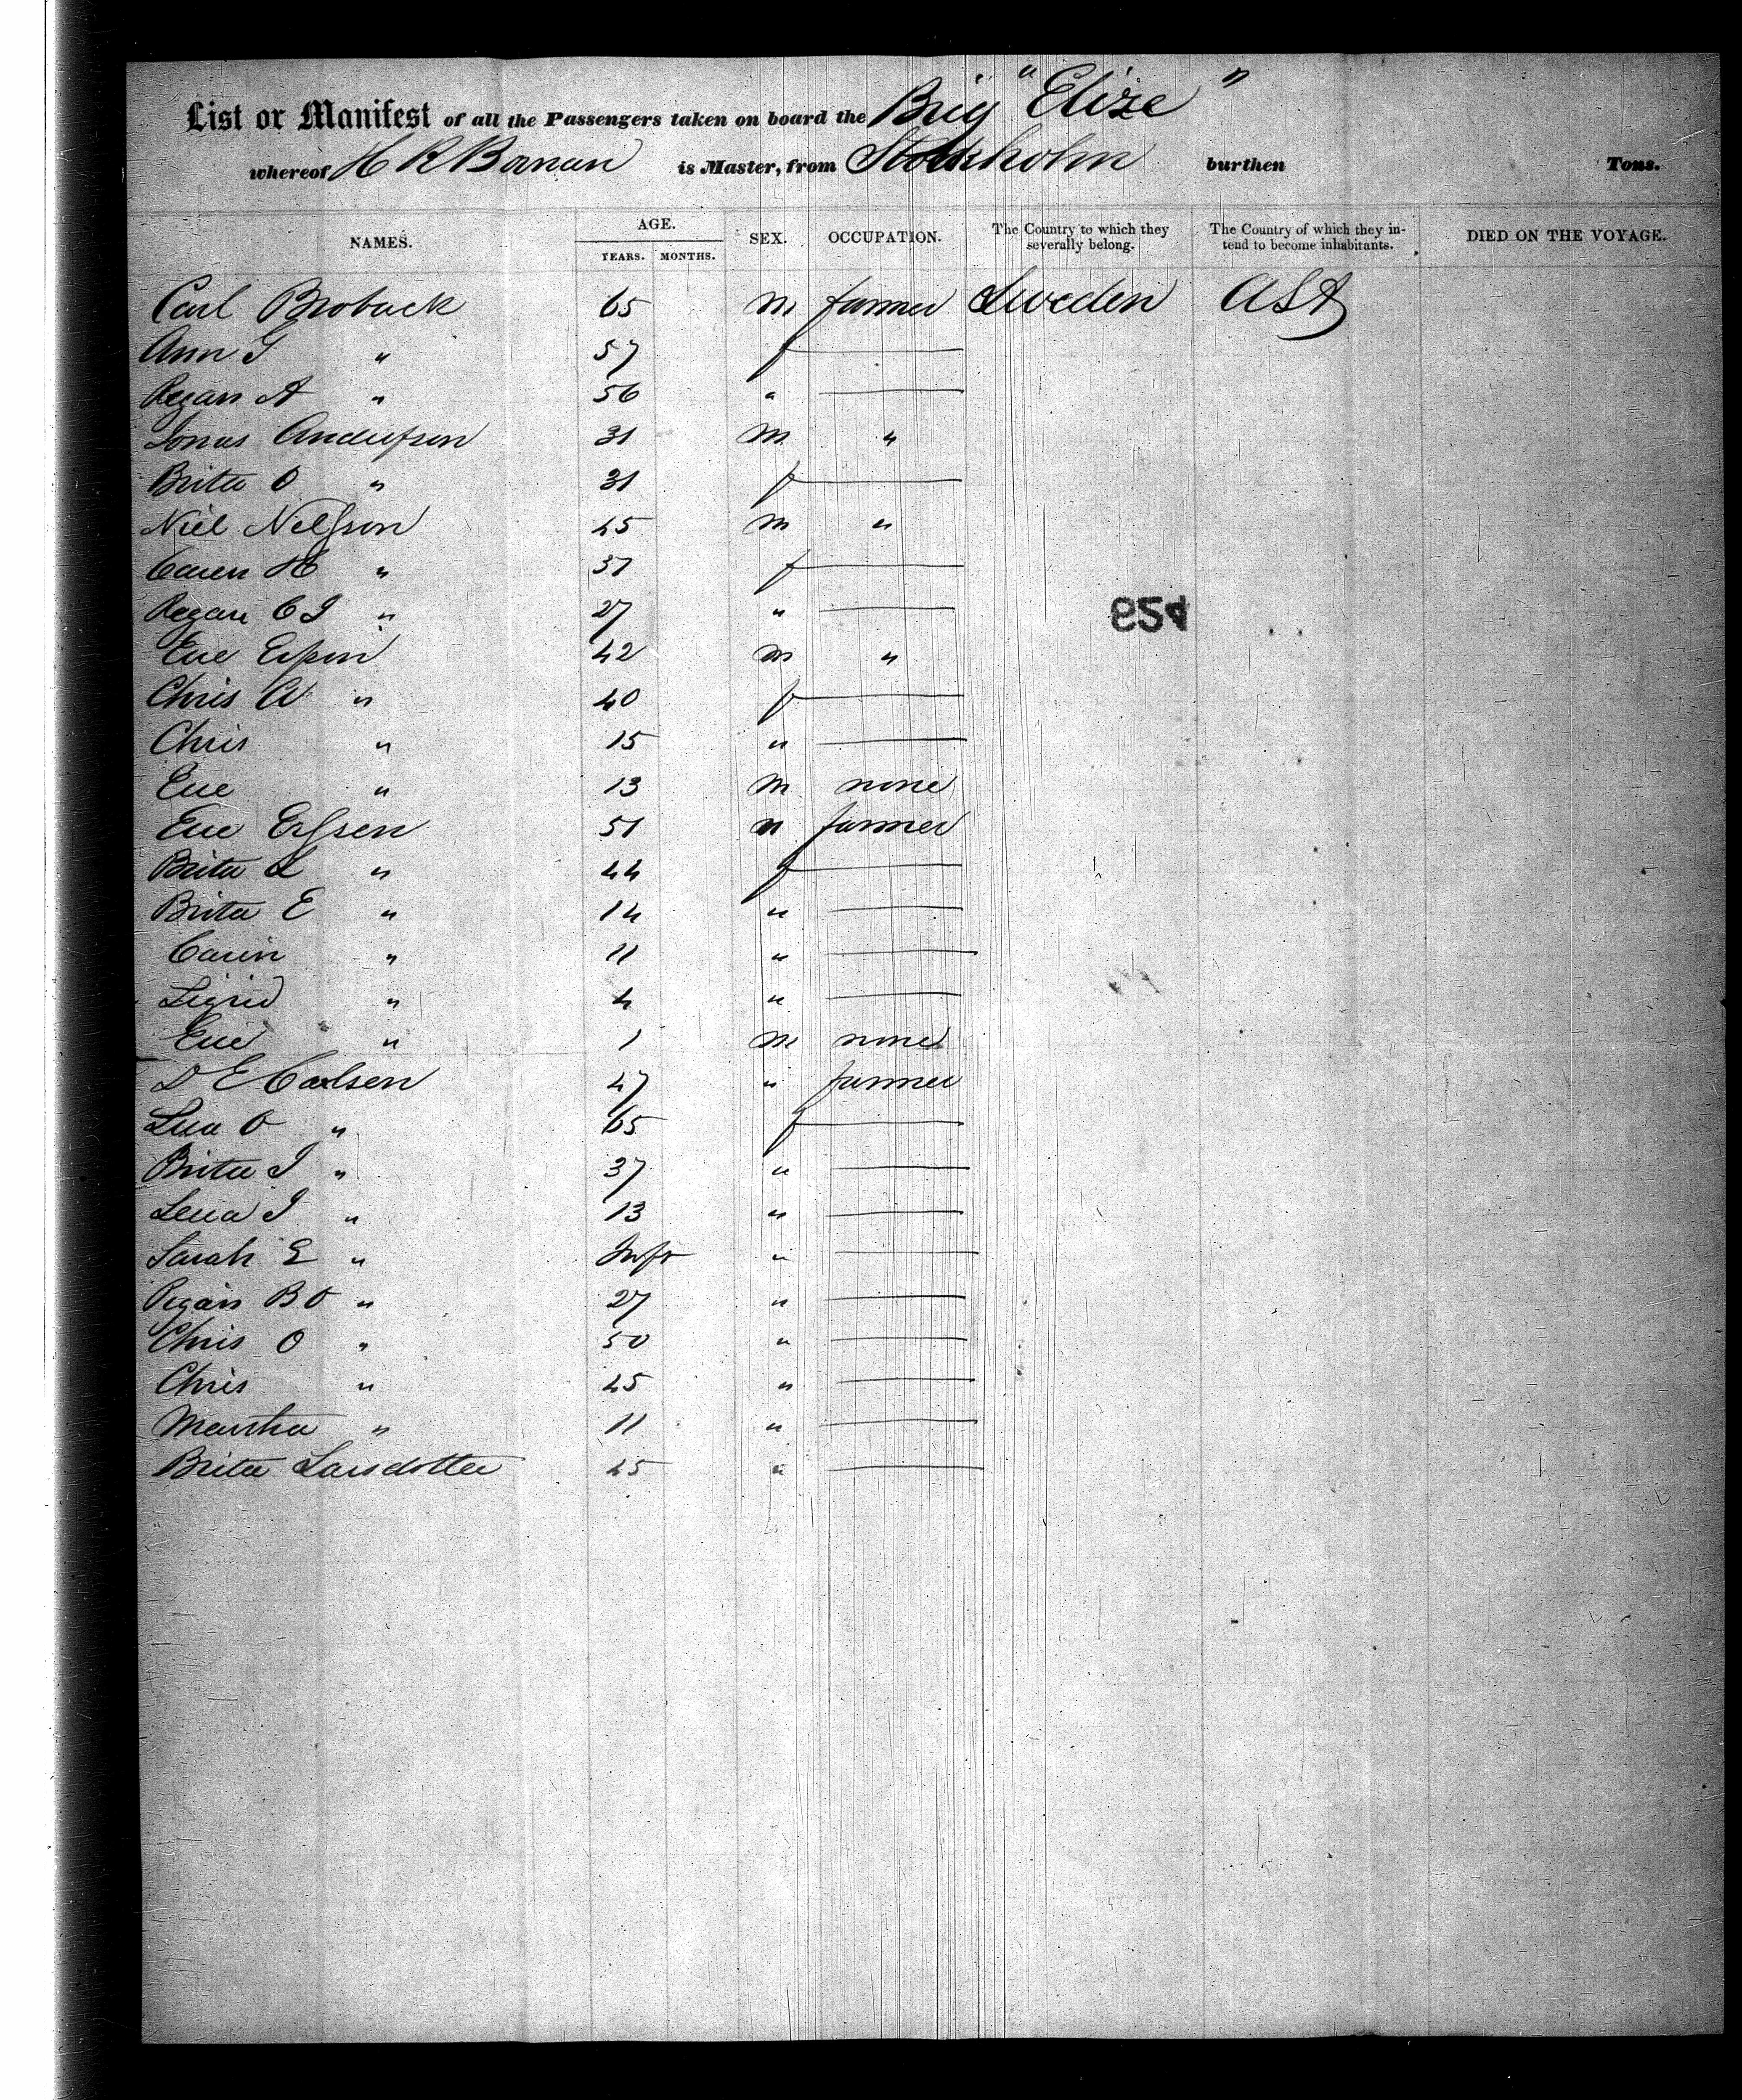 List or Manifest of all the Passengers taken on board the Brig "Elize"
whereof H R Boman is Master, from Stockholm burthen Tons.
NAMES. AGE. YEARS. MONTHS. SEX. OCCUPATION. The Country to which they severally belong. The Country of which they intend to become inhabitants. DIED ON THE VOYAGE.
Carl Broback 65 m farmer Sweden USA
Ann G " 57 f
Regan A " 56 "
Jonas Anderson 31 m "
Brita O " 31 f
Niel Nelson 45 m "
Caren H " 37 f
Regan C J " 27 "
Eric Erson 42 m "
Chris A " 40 f
Chris " 15 "
Eric " 13 m none
Eric Ersen 51 " farmer
Brita L " 44 f
Brita E " 14 "
Carin " 11 "
Sigrid " 4 "
Eric " 1 m none
D E Carlsen 47 " farmer
Lisa O " 65 f
Brita J " 37 "
Lena J " 13 "
Sarah E " Inft "
Regan B O " 27 "
Chris O " 50 "
Chris " 45 "
Martha " 11 "
Brita Larsdotter 45 "